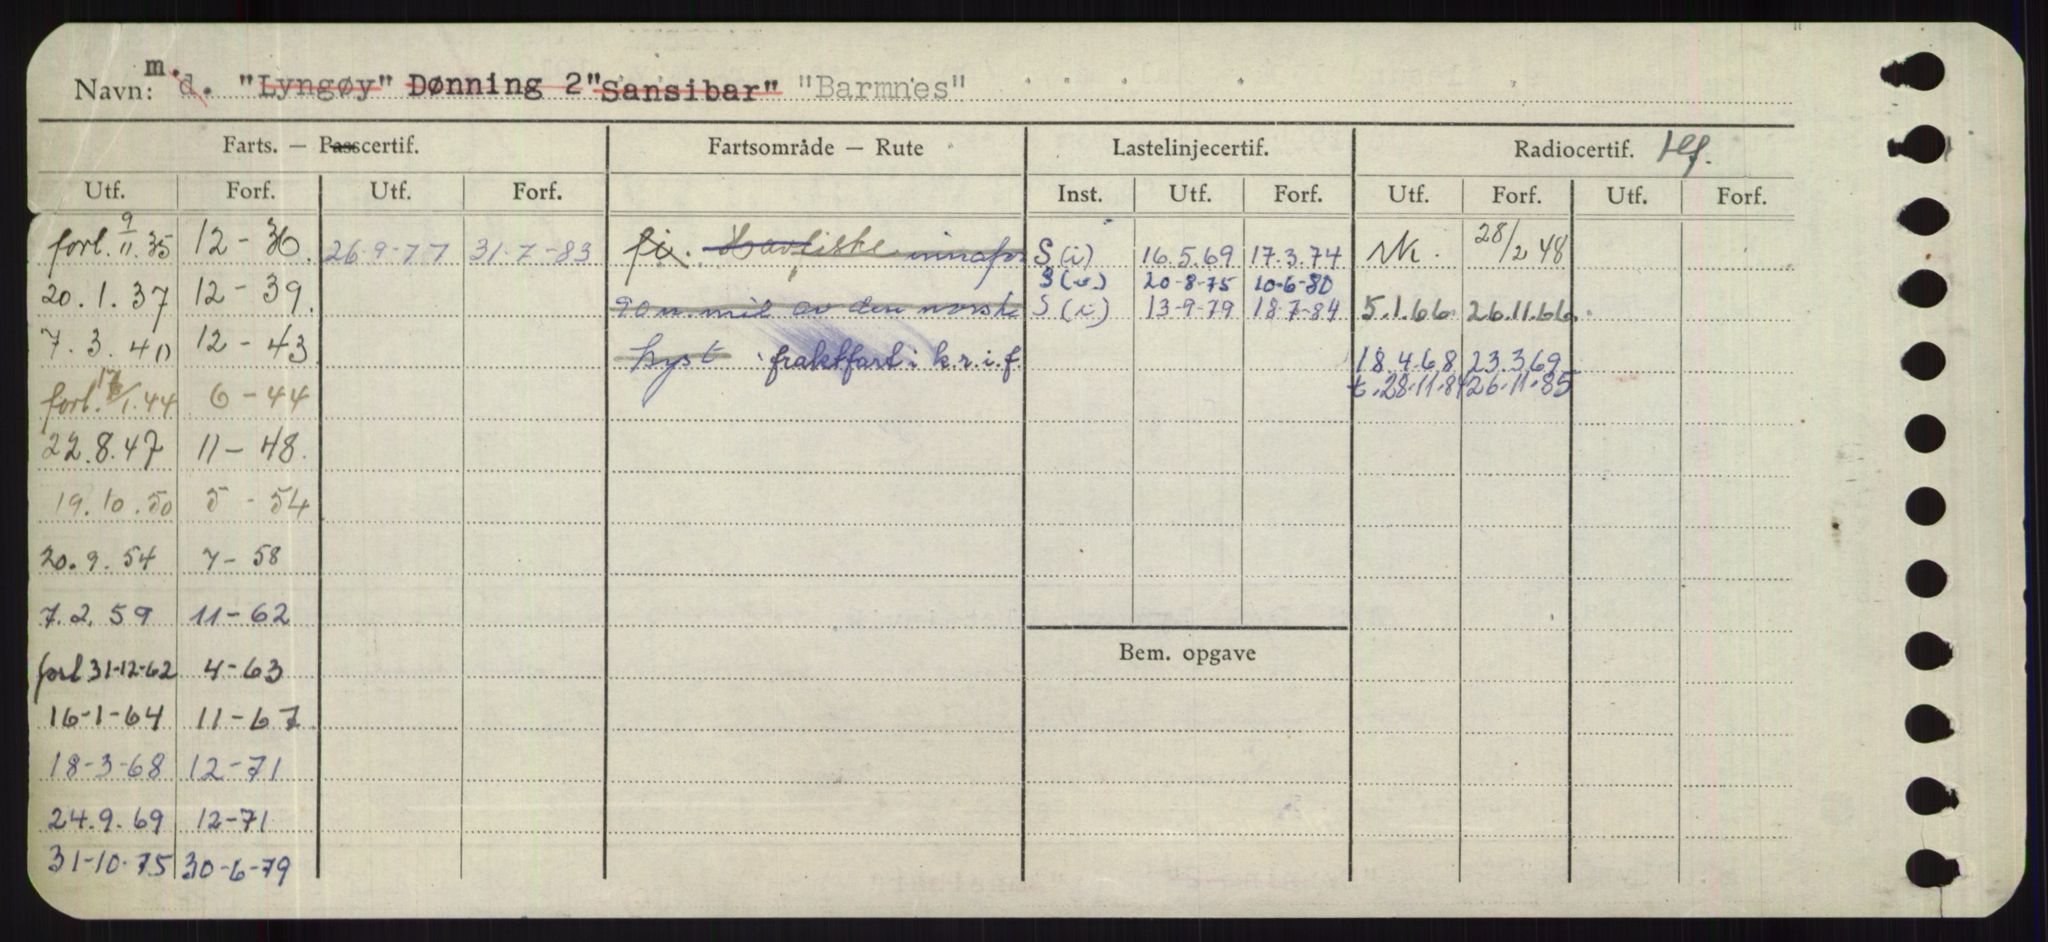 Navn: m. d. "Lyngøy" Dønning 2 "Sansibar" "Barmnes"
Farts. — Passcertif. Fartsområde — Rute Lastelinjecertif. Radiocertif. tlf.
Utf. Forf. Utf. Forf. Inst. Utf. Forf. Utf. Forf. Utf. Forf.
forl. 9/11.35 12-36. 26-9-77 31-7-83 fi. Havfiske innafor S(i) 16.5.69 17.3.74 Nk. 28/2 48
S(i) 20-8-75 10-6-80
20.1.37 12-39. 90 n. mil av den norske S(i) 13-9-79 18-7-84 5.1.66. 26.11.66.
7.3.40 12-43 kyst fraktfart i k.r.i.f. 18.4.68 23.3.69
t.28.11.84 26.11.85
forl. /1.44 6-44
22.8.47 11-48.
19.10.50 5-54
20.9.54 7-58
7.2.59 11-62
Bem. opgave
forl 31-12-62 4-63
16-1-64 11-67
18-3-68 12-71
24.9.69 12-71
31-10-75 30-6-79